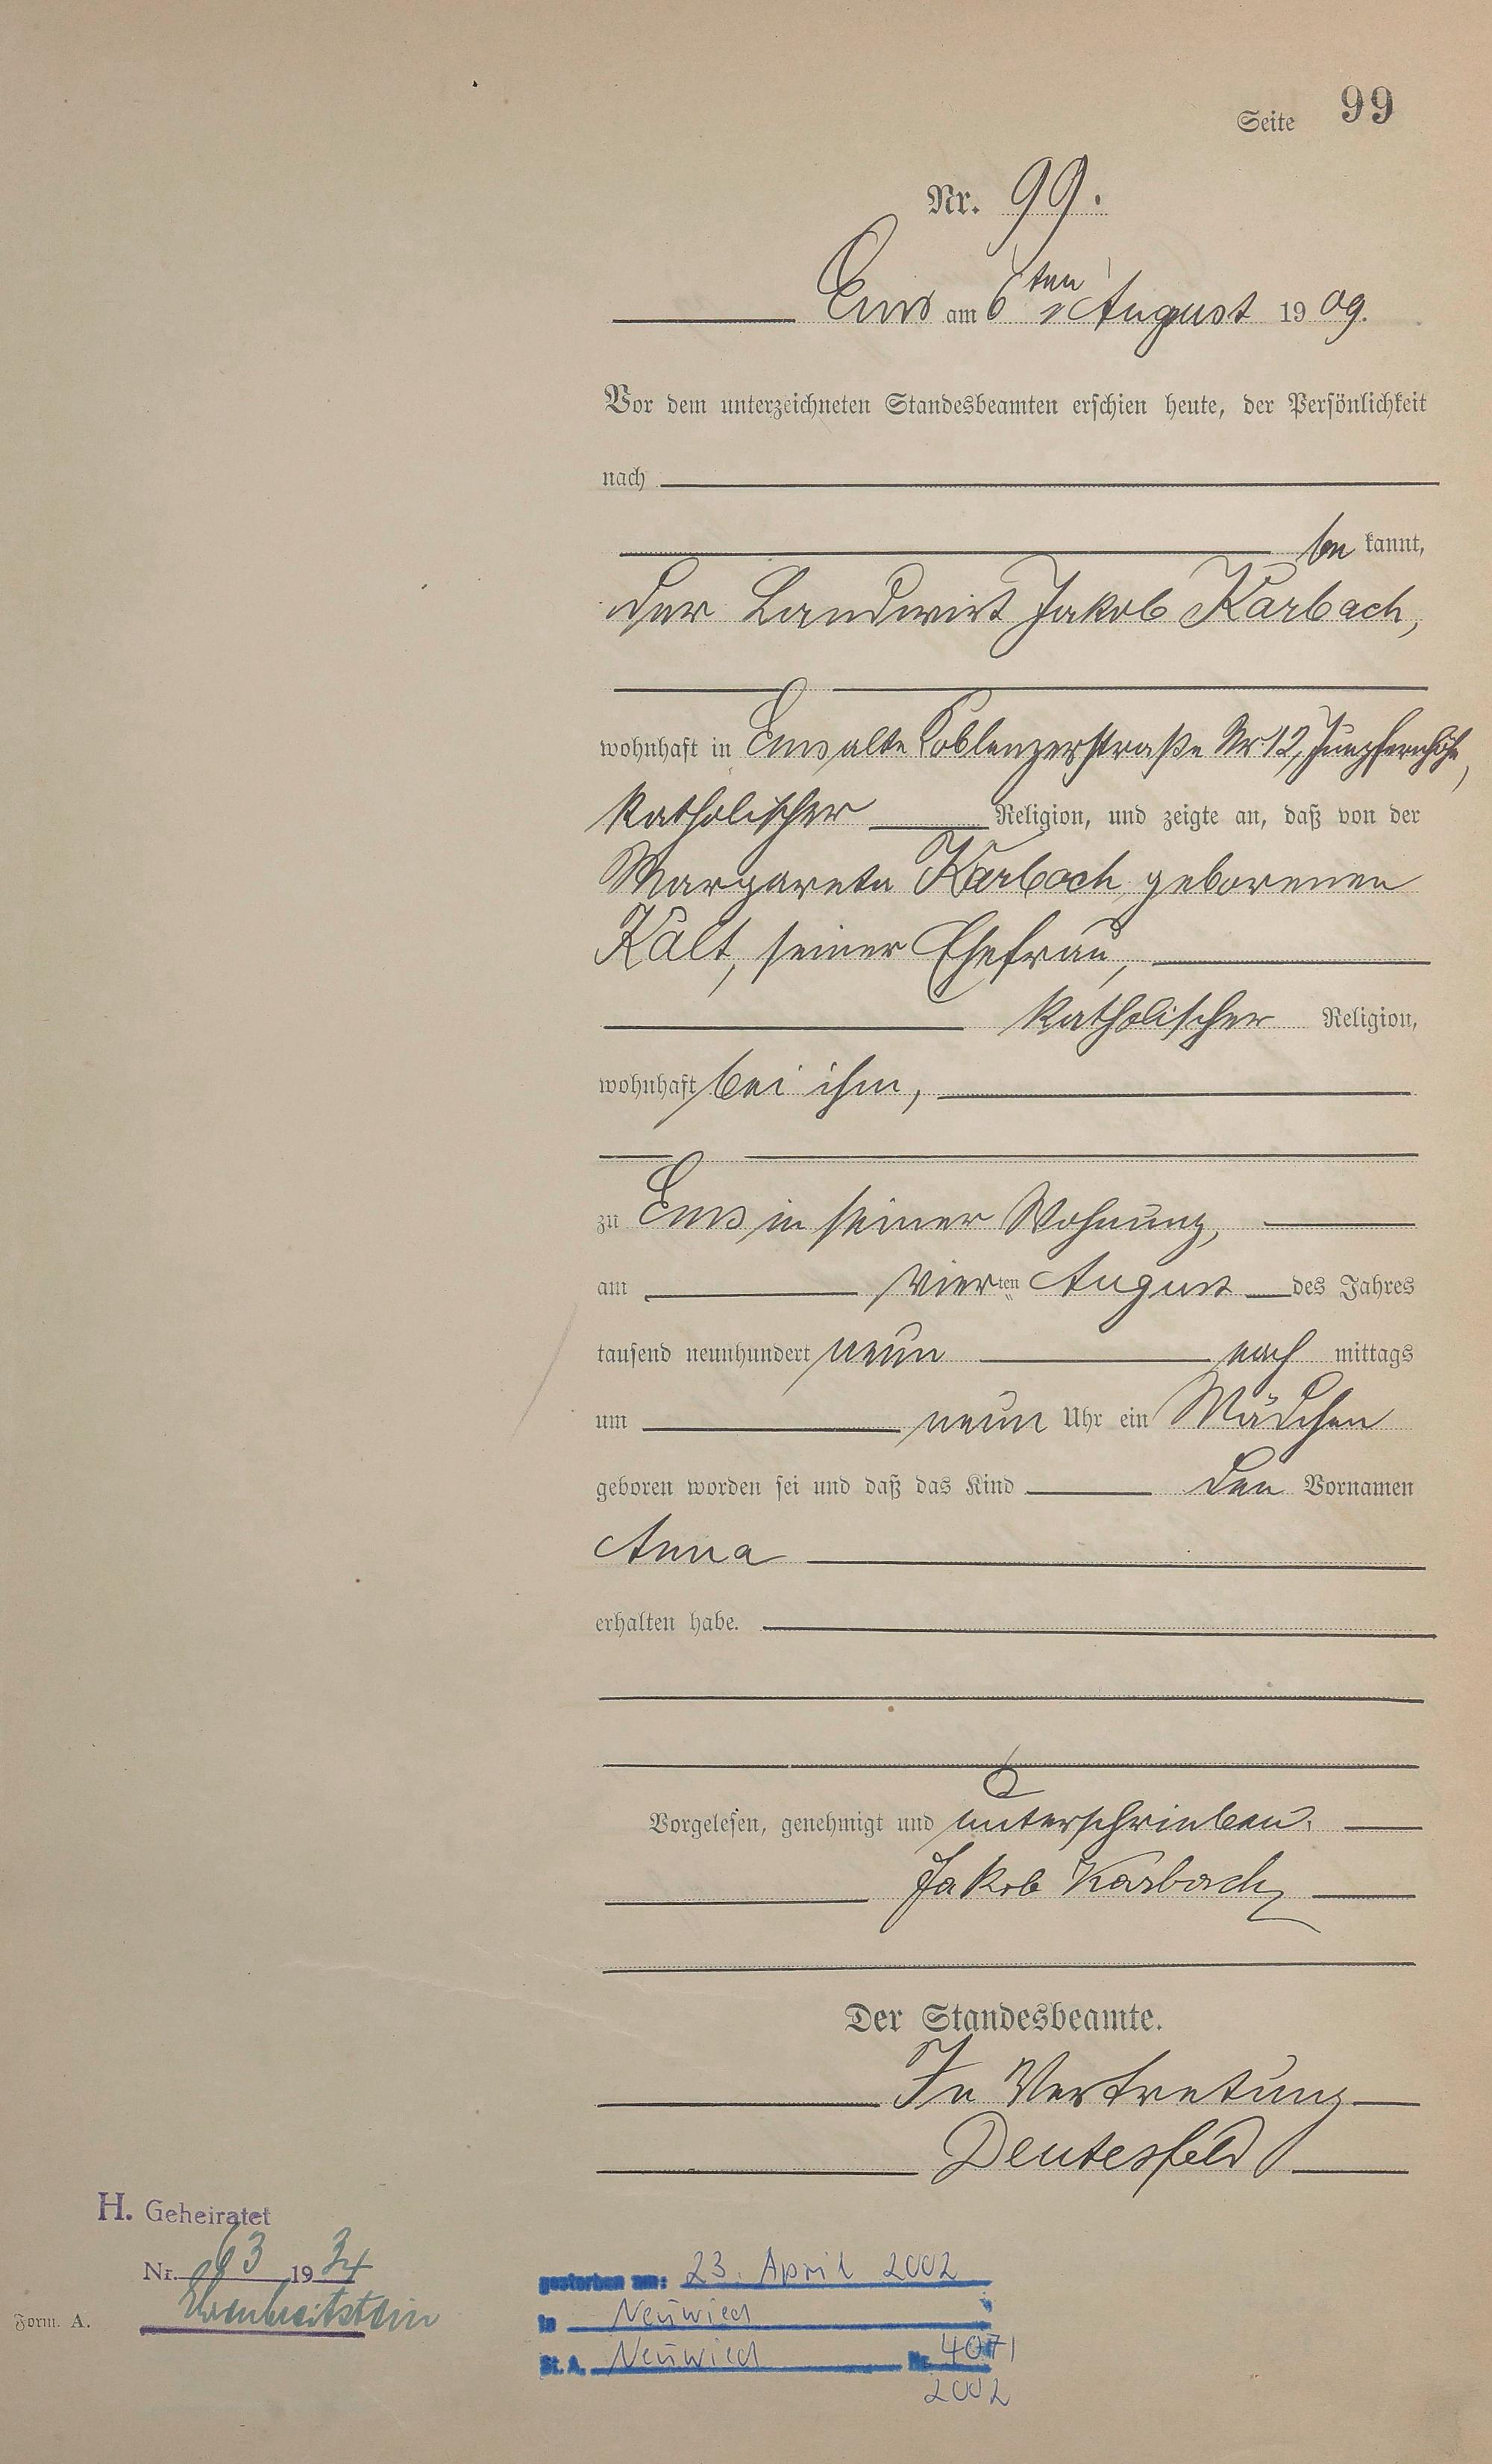 Seite 99
Nr. 99.
Ems am 6ten August 1909.
Vor dem unterzeichneten Standesbeamten erschien heute, der Persönlichkeit
nach
be kannt,
der Landwirt Jakob Karbach,
wohnhaft in Ems alte Coblenzerstraße Nr. 12, Jungfernhöhe,
katholischer Religion, und zeigte an, daß von der
Margareta Karbach geborenen
Kalt, seiner Ehefrau,
katholischer Religion,
wohnhaft bei ihm,
zu Ems in seiner Wohnung,
am vierten August des Jahres
tausend neunhundert neun nach mittags
um neun Uhr ein Mädchen
geboren worden sei und daß das Kind den Vornamen
Anna
erhalten habe.
Vorgelesen, genehmigt und unterschrieben.
Jakob Karbach
Der Standesbeamte.
In Vertretung
Deutesfeld
H. Geheiratet
Nr. 1934
Ehrenbreitstein
Form. A.
gestorben am: 23. April 2002
in Neuwied
St. A. Neuwied Nr. 4071
2002